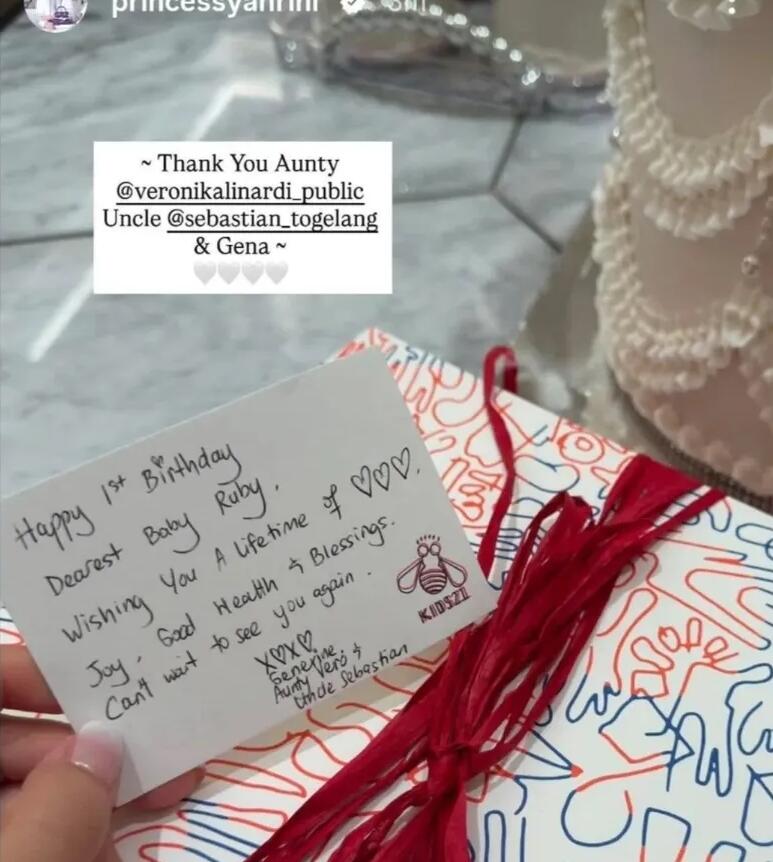 princessyahrini
~ Thank You Aunty
@veronikalinardi_public
Uncle @sebastian_togelang
& Gena ~
🤍🤍🤍🤍
Happy 1st Birthday
Dearest Baby Ruby.
Wishing You A lifetime of ♡♡♡.
Joy, Good Health & Blessings.
Can't wait to see you again.
X♡X♡
Genevine,
Aunty Vero &
Uncle Sebastian
KIDSZII